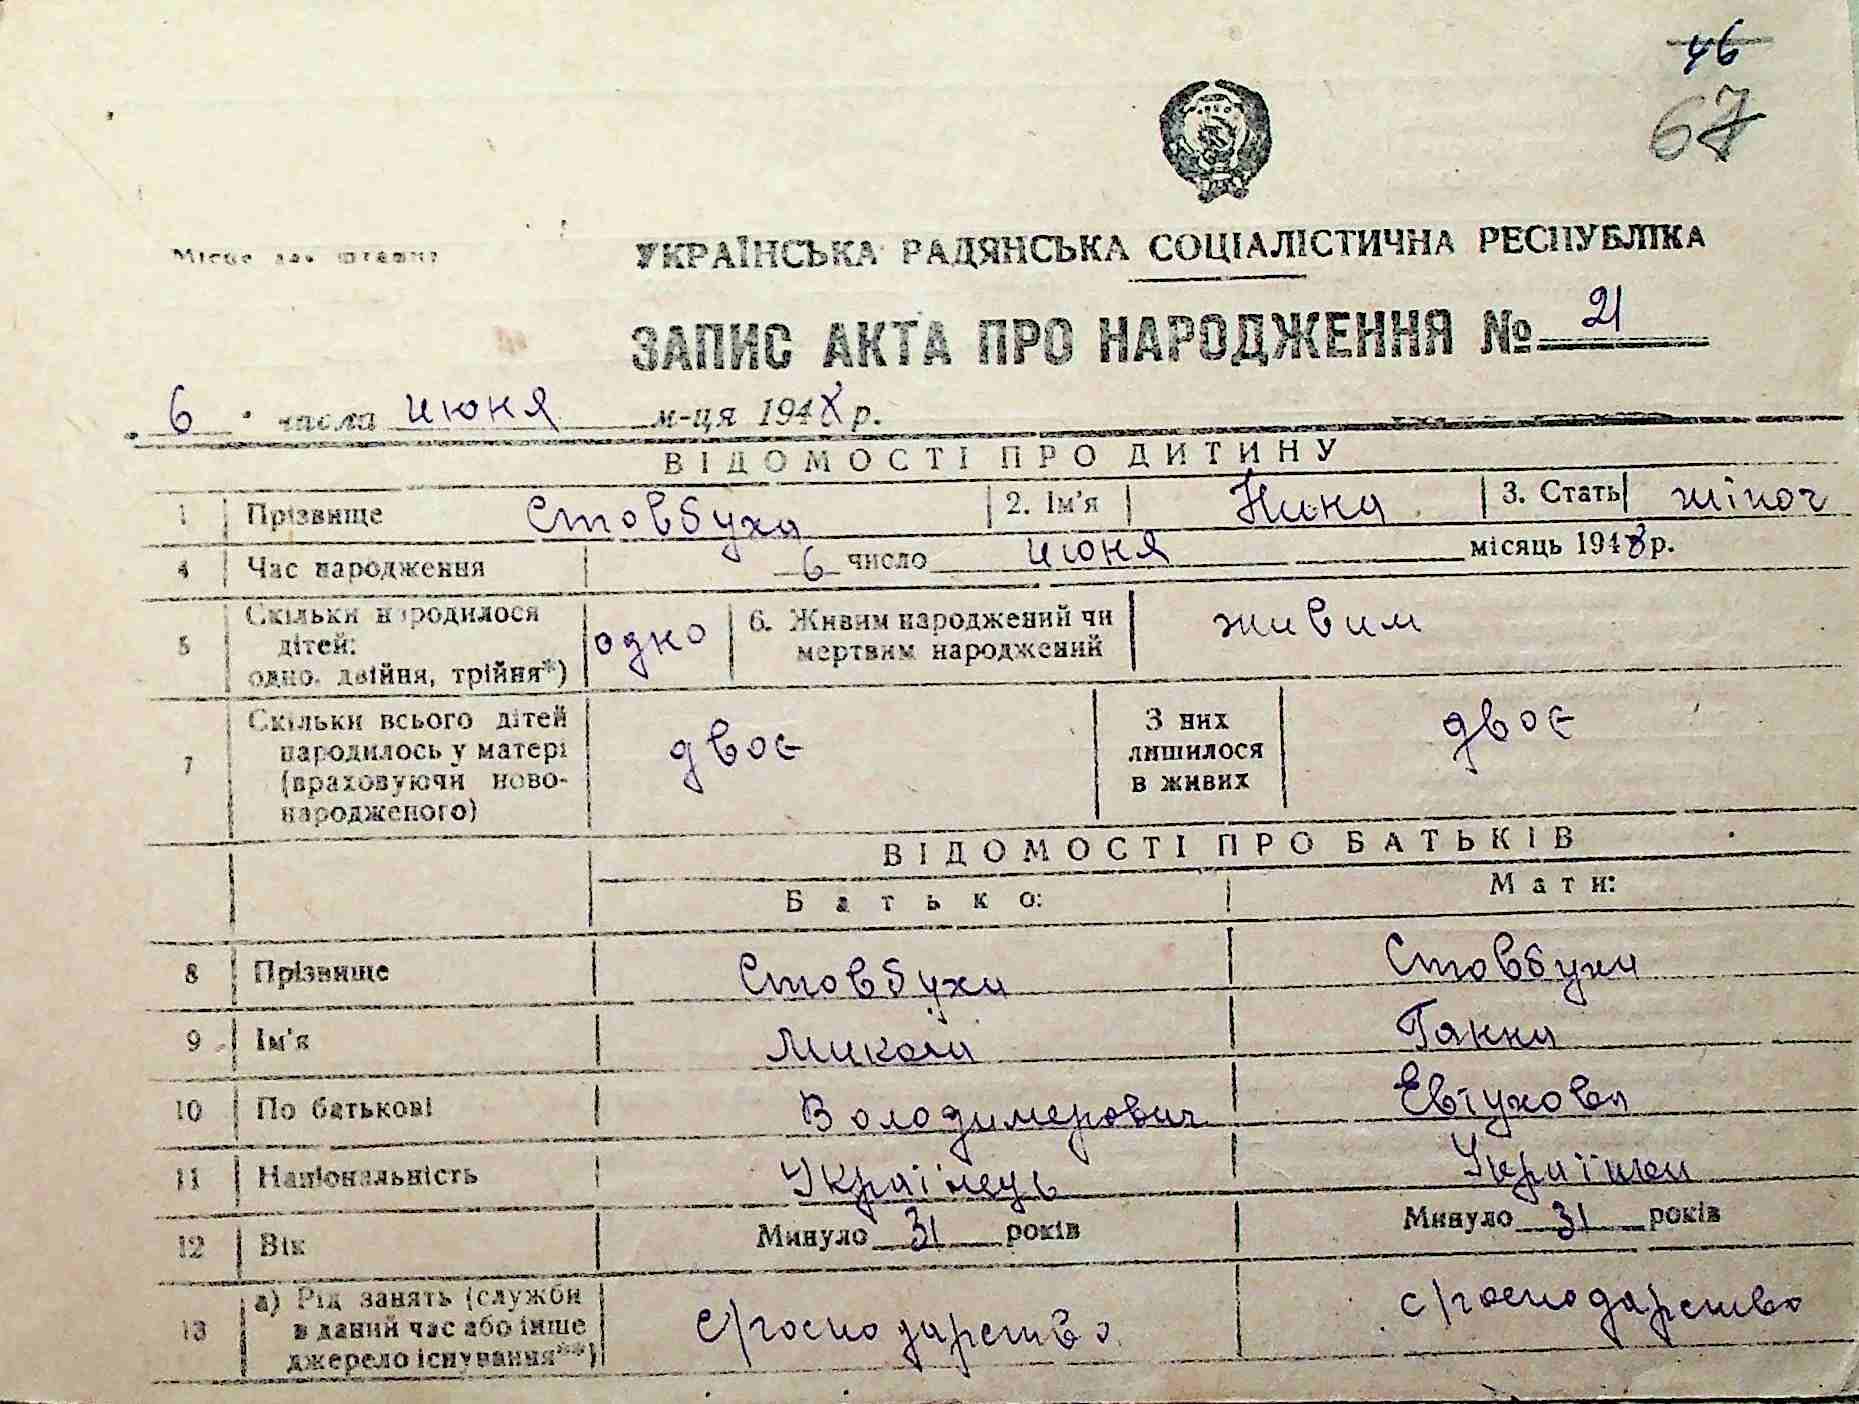 46
67
Місце для штампу
УКРАЇНСЬКА РАДЯНСЬКА СОЦІАЛІСТИЧНА РЕСПУБЛІКА
ЗАПИС АКТА ПРО НАРОДЖЕННЯ № 21
6 числа июня м-ця 1948 р.
ВІДОМОСТІ ПРО ДИТИНУ
1 Прізвище Стовбуха 2. Ім'я Нина 3. Стать жіноч
4 Час народження 6 число июня місяць 1948 р.
5 Скільки народилося дітей: одно, двійня, трійня*) одно 6. Живим народжений чи мертвим народжений живим
7 Скільки всього дітей народилось у матері (враховуючи новонародженого) двоє З них лишилося в живих двоє
ВІДОМОСТІ ПРО БАТЬКІВ
Батько: Мати:
8 Прізвище Стовбуха Стовбуха
9 Ім'я Микола Ганна
10 По батькові Володимерович Евтухова
11 Національність Українець Українка
12 Вік Минуло 31 років Минуло 31 років
13 а) Рід занять (служби в даний час або інше джерело існування**) с/господарство с/господарство